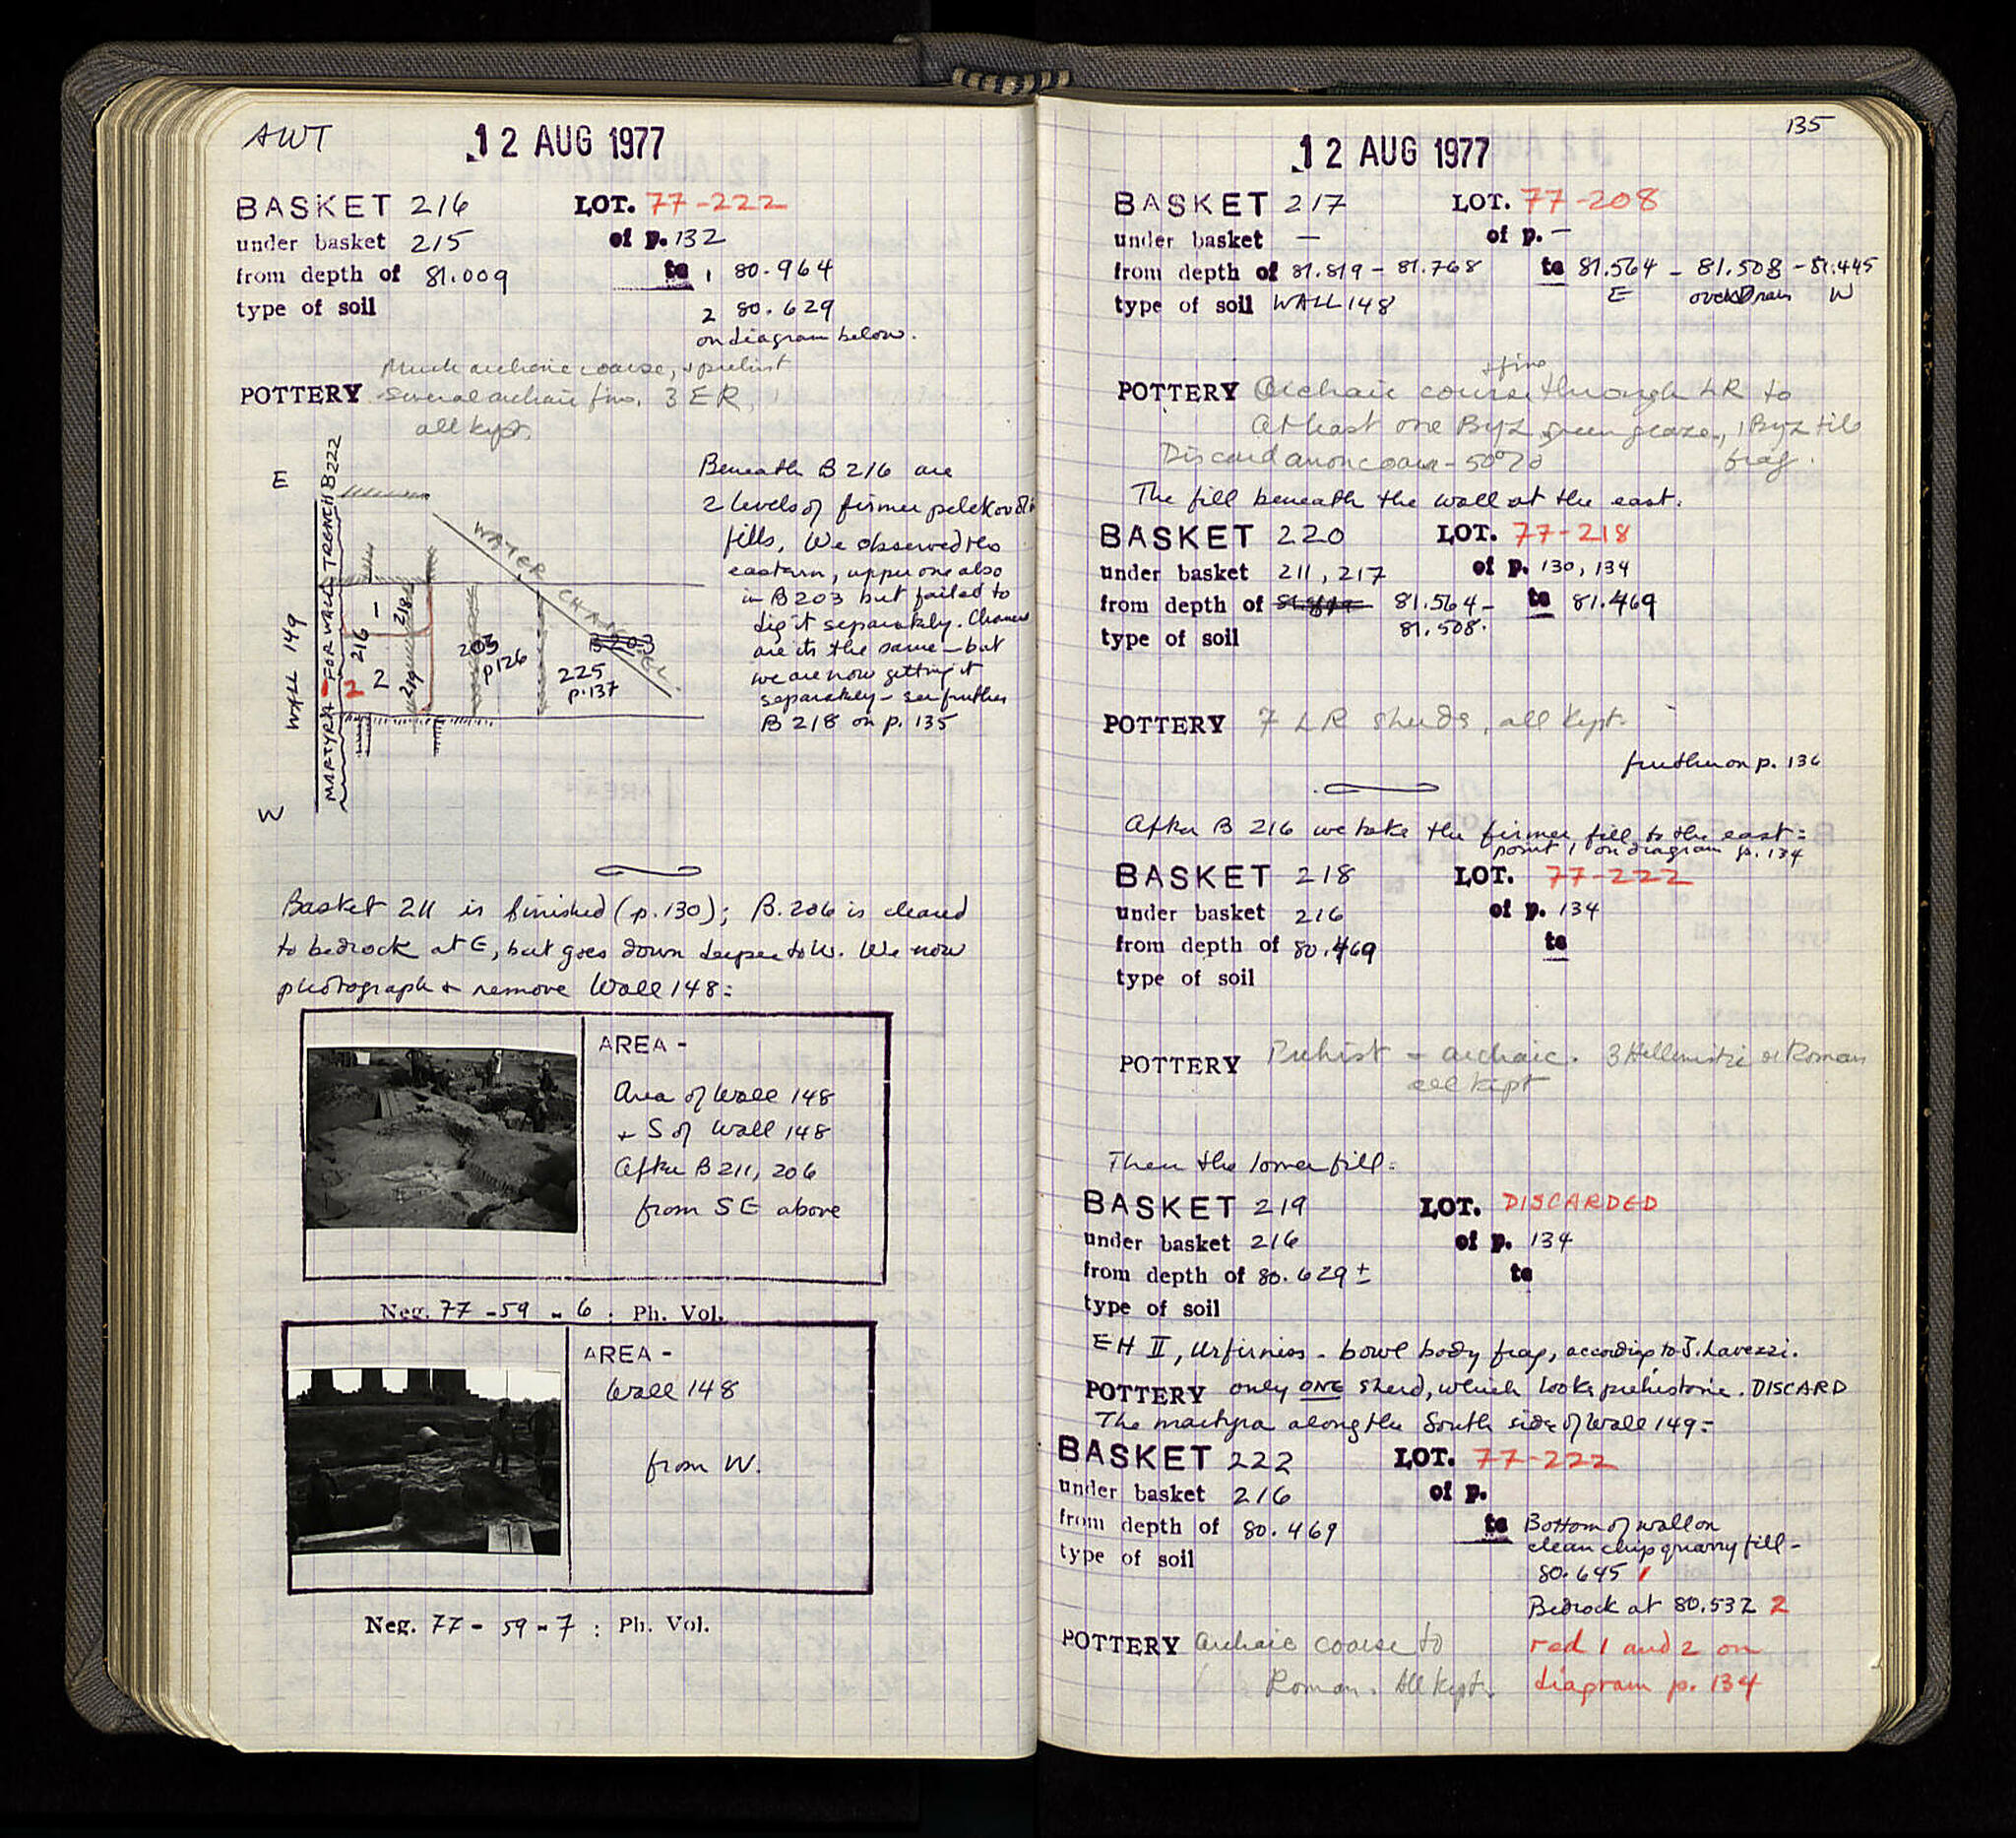 AWT
12 AUG 1977
BASKET 216 LOT. 77-222
under basket 215 of p. 132
from depth of 81.009 to 1 80.964
type of soil 2 80.629
on diagram below.
Much archaic coarse, + prehist
POTTERY Several archaic fine, 3 ER,
all kept.
E
WALL 149
MARTYRA FOR WALL TRENCH B222
WATER CHANNEL
1
218
216
2
2
219
203
p126
B203
225
p.137
W
Beneath B 216 are
2 levels of firmer pelekoudi
fills. We observed the
eastern, upper one also
in B 203 but failed to
dig it separately. Chances
are its the same – but
we are now getting it
separately – see further
B 218 on p. 135
Basket 211 is finished (p. 130); B. 206 is cleared
to bedrock at E, but goes down deeper to W. We now
photograph + remove Wall 148:
AREA -
Area of Wall 148
+ S of Wall 148
After B 211, 206
from SE above
Neg. 77 - 59 - 6 : Ph. Vol.
AREA -
Wall 148
from W.
Neg. 77 - 59 - 7 : Ph. Vol.
135
12 AUG 1977
BASKET 217 LOT. 77-208
under basket — of p. —
from depth of 81.819 – 81.768 to 81.564 – 81.508 – 81.445
type of soil WALL 148 E over Drain W
+ fine
POTTERY Archaic coarse through LR to
At least one Byz green glaze, 1 Byz tile
Discard anon coarse – 50% frag.
The fill beneath the wall at the east:
BASKET 220 LOT. 77-218
under basket 211, 217 of p. 130, 134
from depth of 81.564 – to 81.469
type of soil 81.508.
POTTERY 7 LR sherds, all kept.
further on p. 136
After B 216 we take the firmer fill to the east:
point 1 on diagram p. 134
BASKET 218 LOT. 77-222
under basket 216 of p. 134
from depth of 80.469 to
type of soil
POTTERY Prehist – archaic. 3 Hellenistic or Roman
all kept
Then the lower fill:
BASKET 219 LOT. DISCARDED
under basket 216 of p. 134
from depth of 80.629 ± to
type of soil
EH II, Urfirniss - bowl body frag, according to J. Lavezzi.
POTTERY only ONE sherd, which looks prehistoric. DISCARD
The martyra along the South side of Wall 149:
BASKET 222 LOT. 77-222
under basket 216 of p.
from depth of 80.469 to Bottom of wall on
type of soil clean chip quarry fill –
80.645 1
Bedrock at 80.532 2
POTTERY Archaic coarse to red 1 and 2 on
Roman. All kept. diagram p. 134